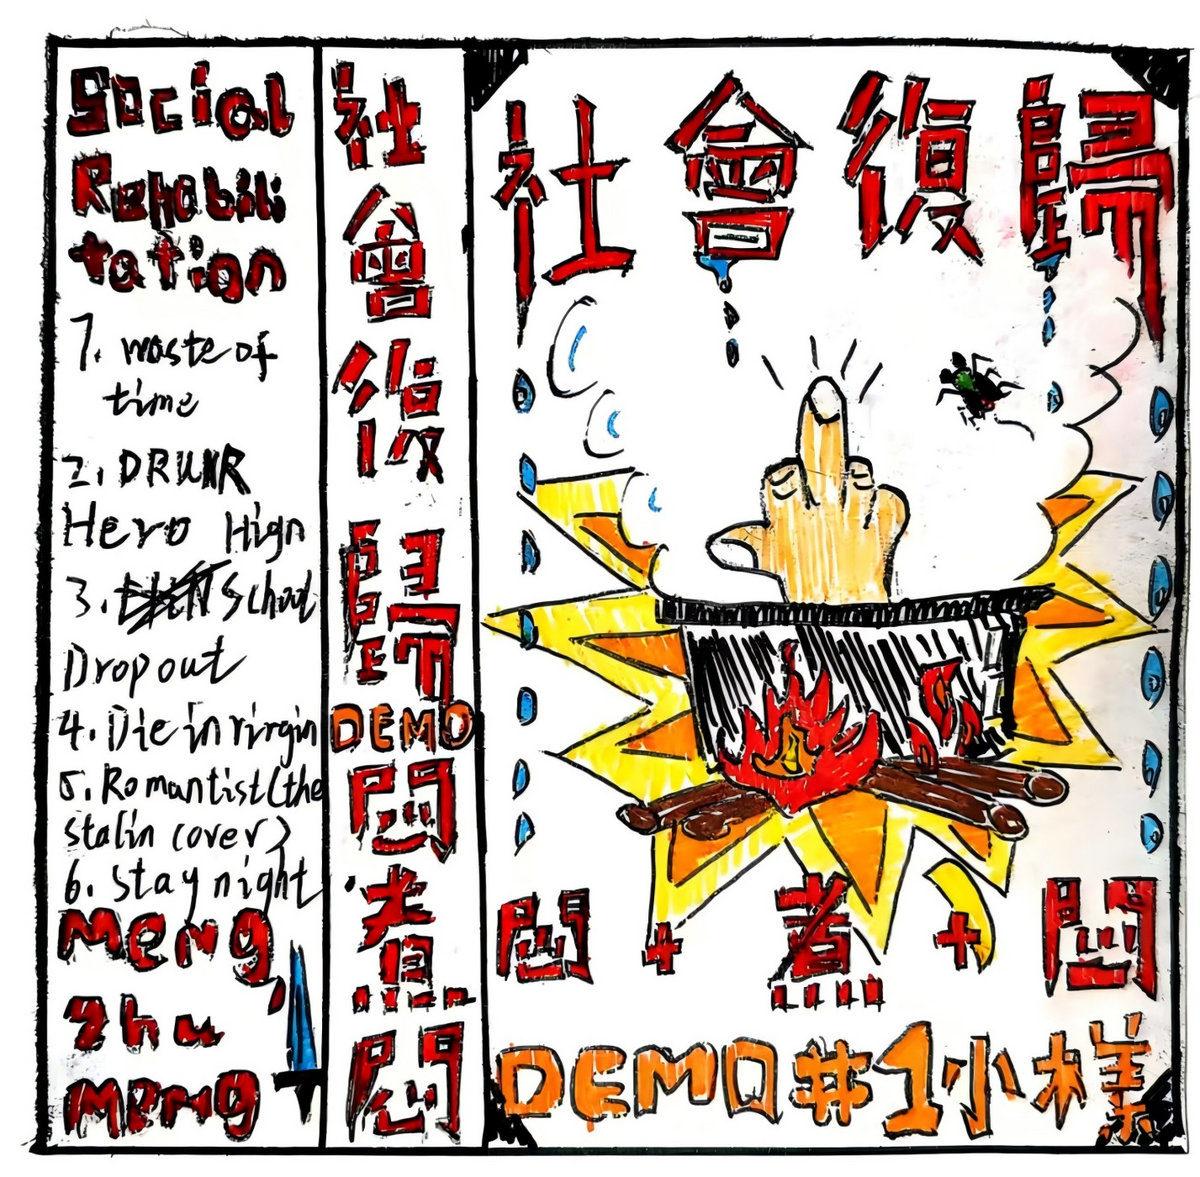 Social
Rehabili
tation
1. waste of
time
2. DRUNK
Hero High
3. School
Drop out
4. Die in virgin
5. Romantist (the
stalin cover)
6. Stay night
Meng
zhu
meng
社會復歸
DEMO
悶煮悶
社會復歸
悶+煮+悶
DEMO#1小樣